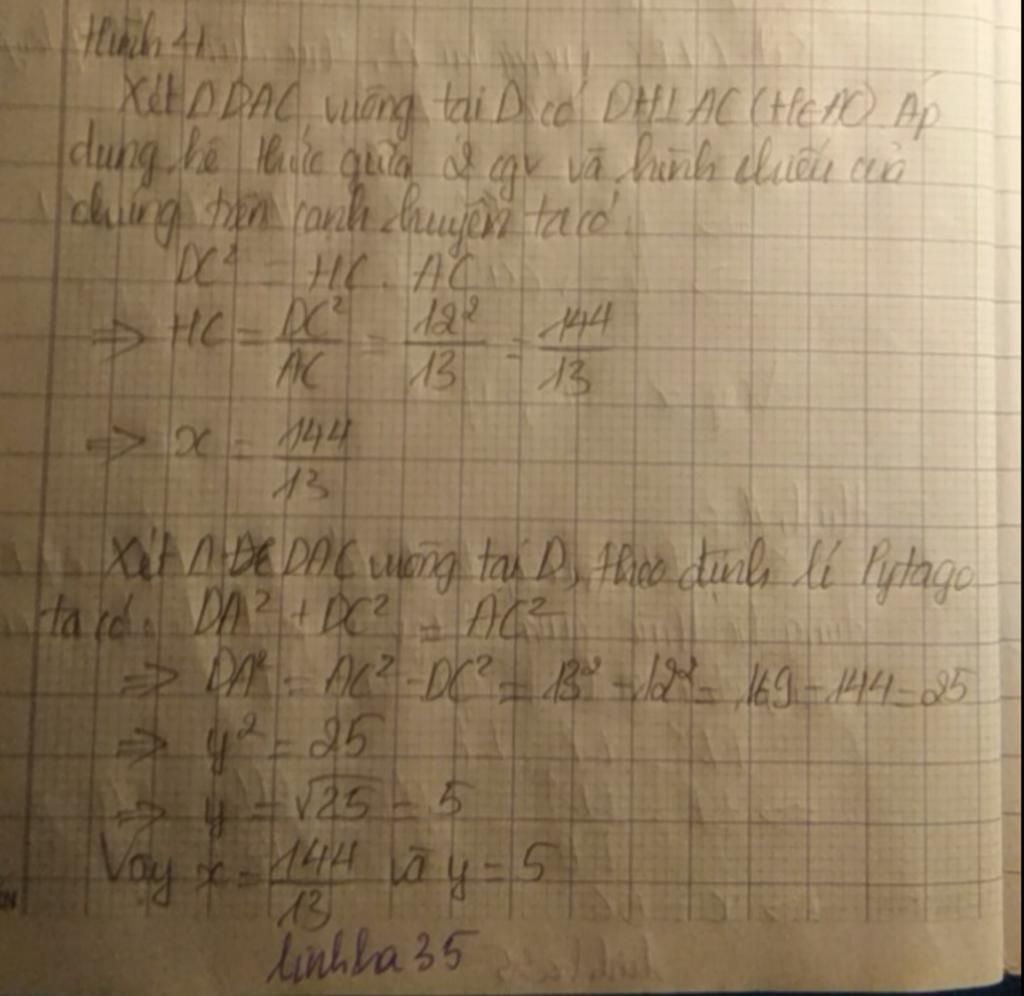 Hình 4.
Xét Δ DAC vuông tại D có DH⊥AC (H∈AC) Áp
dụng hệ thức giữa 2 cgv và hình chiếu của
chúng trên cạnh huyền ta có
DC² = HC . AC
=> HC = DC²/AC = 12²/13 = 144/13
=> x = 144/13
Xét Δ DAC vuông tại D, theo định lí Pytago
ta có: DA² + DC² = AC²
=> DA² = AC² - DC² = 13² - 12² = 169 - 144 = 25
=> y² = 25
=> y = √25 = 5
Vậy x = 144/13 và y = 5
linhba35